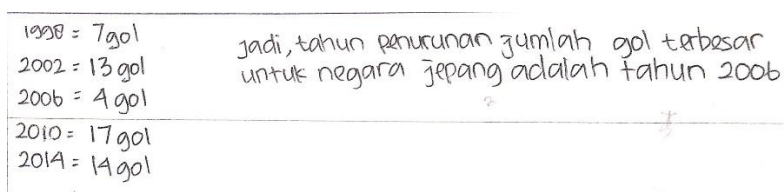 1998 = 7 gol
2002 = 13 gol
2006 = 4 gol
2010 = 17 gol
2014 = 14 gol
Jadi, tahun penurunan jumlah gol terbesar
untuk negara jepang adalah tahun 2006